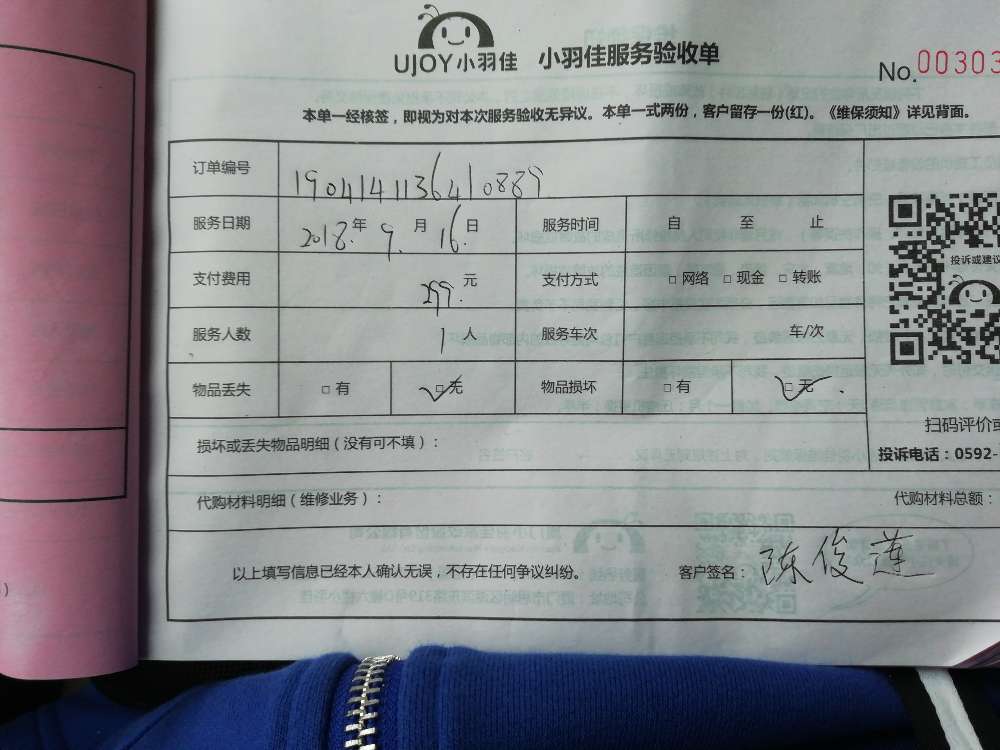 UJOY小羽佳 小羽佳服务验收单
No.00303
本单一经核签，即视为对本次服务验收无异议。本单一式两份，客户留存一份(红)。《维保须知》详见背面。
订单编号 1904141136410889
服务日期 2018.年 9.月 16.日 服务时间 自 至 止
支付费用 299.元 支付方式 □ 网络 □ 现金 □ 转账
服务人数 1 人 服务车次 车/次
物品丢失 □ 有 □ 无 物品损坏 □ 有 □ 无
投诉或建议
扫码评价或
损坏或丢失物品明细（没有可不填）：
投诉电话：0592-
代购材料明细（维修业务）：
代购材料总额：
以上填写信息已经本人确认无误，不存在任何争议纠纷。 客户签名：陈俊莲